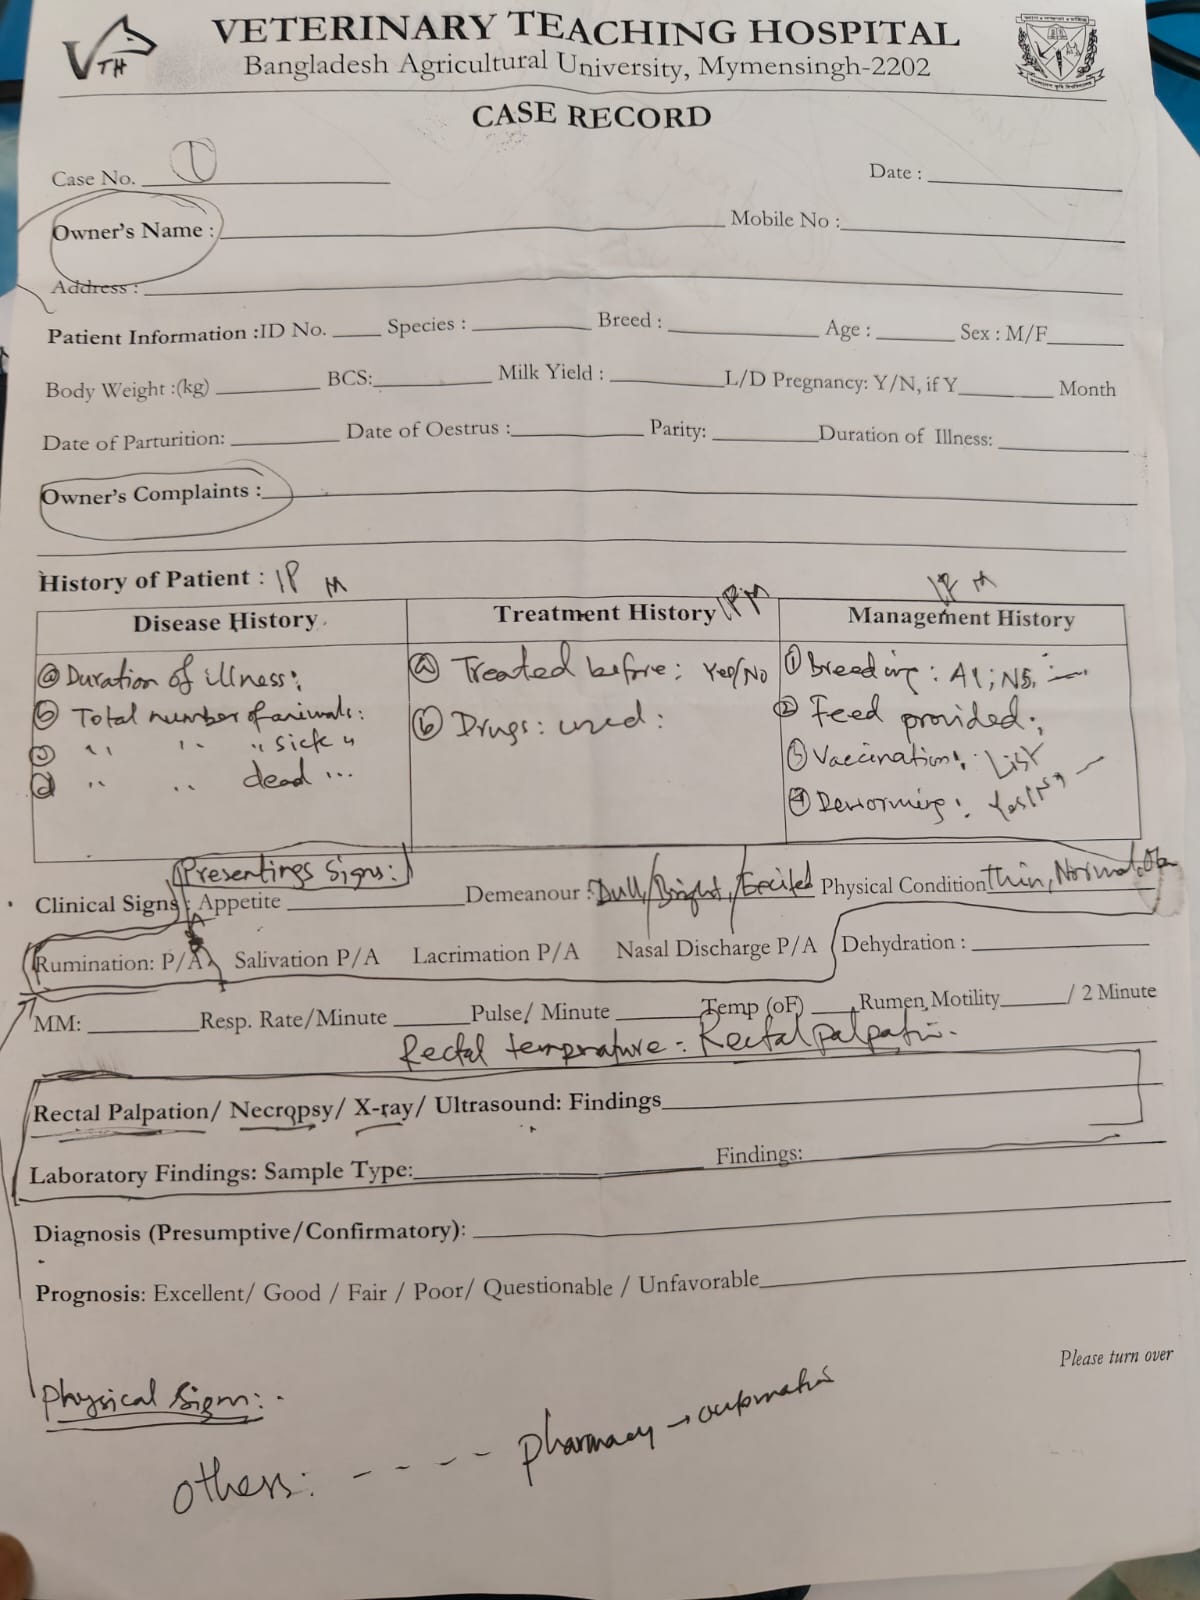 VTH
VETERINARY TEACHING HOSPITAL
Bangladesh Agricultural University, Mymensingh-2202
CASE RECORD
Case No. ① Date :
Owner's Name : Mobile No :
Address :
Patient Information :ID No. Species : Breed : Age : Sex : M/F
Body Weight :(kg) BCS: Milk Yield : L/D Pregnancy: Y/N, if Y Month
Date of Parturition: Date of Oestrus : Parity: Duration of Illness:
Owner's Complaints :
History of Patient : IP M IP M
Disease History Treatment History IPM Management History
ⓐ Duration of illness: ⓐ Treated before: Yes/No ① Breeding: AI; NS,
ⓑ Total number of animals: ⓑ Drugs: used: ② Feed provided:
ⓒ " " " sick " ③ Vaccination: List
ⓓ " " dead ... ④ Deworming: Yes/No
Presentings Signs:
Clinical Signs : Appetite Demeanour : Dull/Bright/Excited Physical Condition Thin, Normal,
Rumination: P/A Salivation P/A Lacrimation P/A Nasal Discharge P/A Dehydration :
MM: Resp. Rate/Minute Pulse/ Minute Temp (oF) Rumen Motility / 2 Minute
Rectal temprature = Rectal palpation.
Rectal Palpation/ Necropsy/ X-ray/ Ultrasound: Findings
Laboratory Findings: Sample Type: Findings:
Diagnosis (Presumptive/Confirmatory):
Prognosis: Excellent/ Good / Fair / Poor/ Questionable / Unfavorable
Please turn over
Physical Sign:
others: - - - - pharmacy →